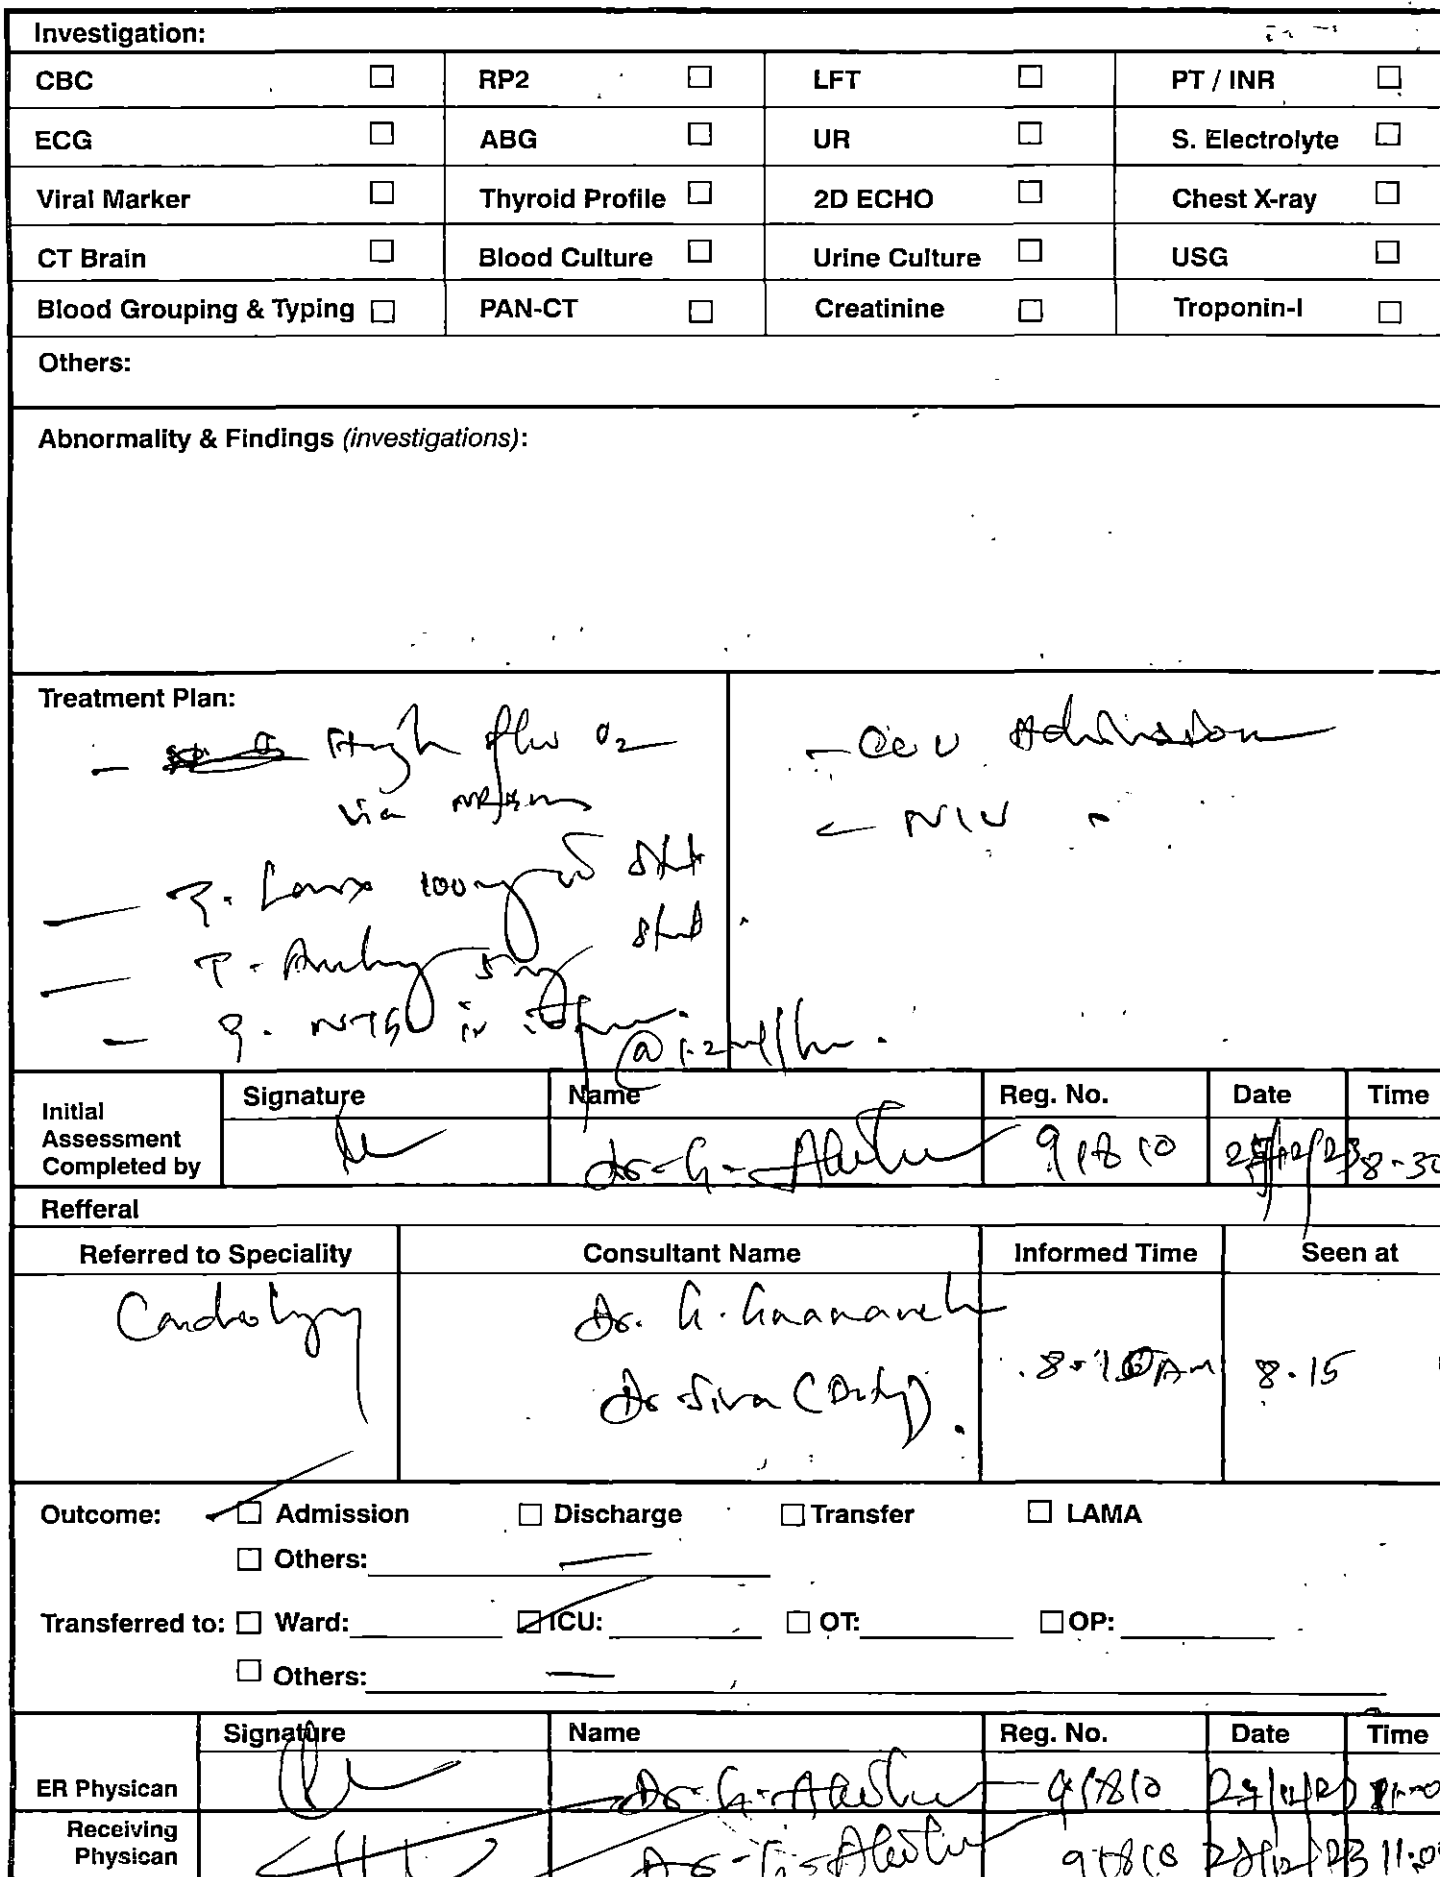 Investigation:
CBC ☐ RP2 ☐ LFT ☐ PT / INR ☐
ECG ☐ ABG ☐ UR ☐ S. Electrolyte ☐
Viral Marker ☐ Thyroid Profile ☐ 2D ECHO ☐ Chest X-ray ☐
CT Brain ☐ Blood Culture ☐ Urine Culture ☐ USG ☐
Blood Grouping & Typing ☐ PAN-CT ☐ Creatinine ☐ Troponin-I ☐
Others:
Abnormality & Findings (investigations):
Treatment Plan:
- High flow O2 - CCU Admission
via - NIV
- Lasix 100mg IV stat
- T. 5mg stat
- NTG in
@ 1.2ml/hr.
Signature Name Reg. No. Date Time
Initial Assessment Completed by Dr. G. 91810 /12/23 8-30
Refferal
Referred to Speciality Consultant Name Informed Time Seen at
Cardiology Dr. G. Gnanavel
Dr Siva (Duty). 8-10 AM 8.15
Outcome: ☐ Admission ☐ Discharge ☐ Transfer ☐ LAMA
☐ Others: —
Transferred to: ☐ Ward: ☐ ICU: ☐ OT: ☐ OP:
☐ Others: —
Signature Name Reg. No. Date Time
ER Physican Dr. G. 91810
Receiving Physican Dr. G. 91810 /12/23 11:0